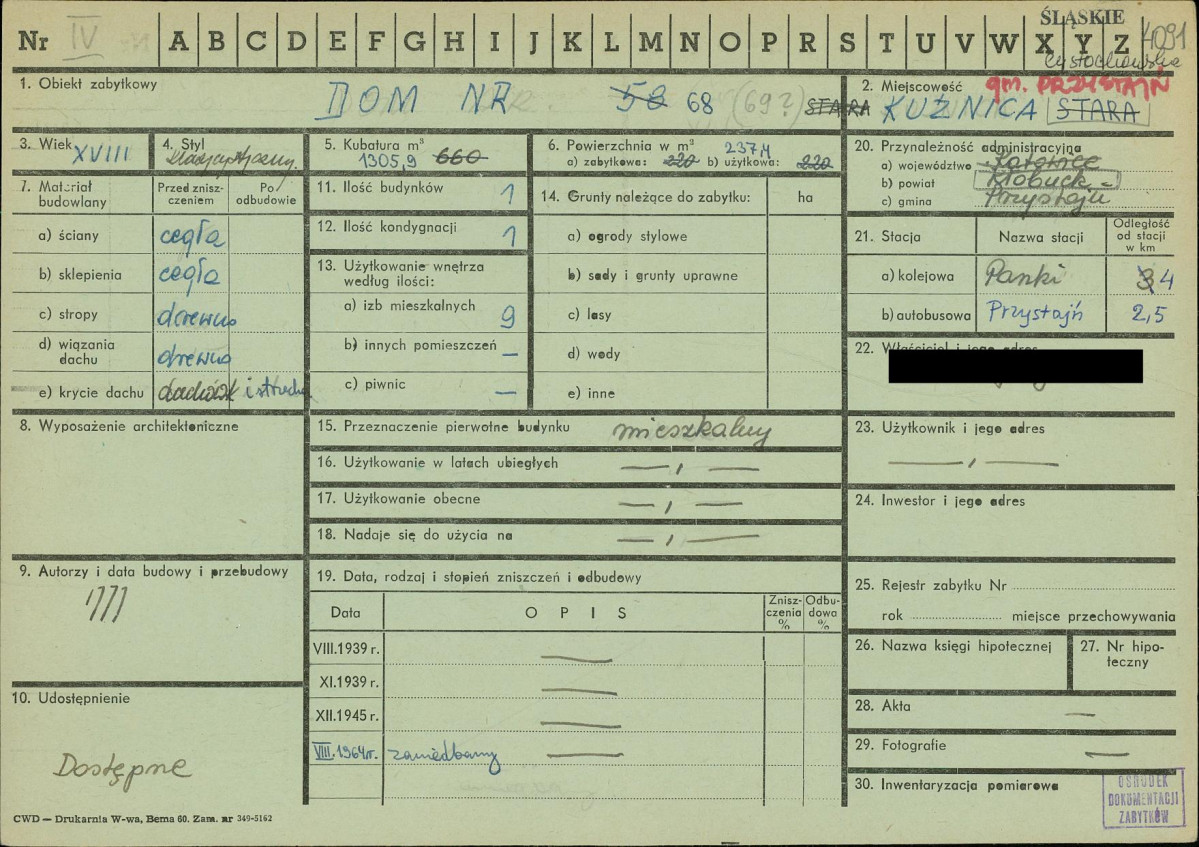 ŚLĄSKIE
Nr IV A B C D E F G H I J K L M N O P R S T U V W X Y Z 4091
1. Obiekt zabytkowy
DOM NR 58 68 (69?)
2. Miejscowość gm. PRZYSTAJŃ
STARA KUŹNICA STARA
3. Wiek XVIII
4. Styl
5. Kubatura m³
1305,9 660
6. Powierzchnia w m² 237,4
a) zabytkowa: 220 b) użytkowa: 220
20. Przynależność administracyjna
a) województwo Katowice
b) powiat Kłobuck
c) gmina Przystajń
7. Materiał budowlany
Przed zniszczeniem
Po odbudowie
a) ściany cegła
b) sklepienia cegła
c) stropy drewno
d) wiązania dachu drewno
e) krycie dachu dachówk i strzecha
11. Ilość budynków 1
12. Ilość kondygnacji 1
13. Użytkowanie wnętrza
według ilości:
a) izb mieszkalnych 9
b) innych pomieszczeń —
c) piwnic —
14. Grunty należące do zabytku: ha
a) ogrody stylowe
b) sady i grunty uprawne
c) lasy
d) wody
e) inne
21. Stacja
Nazwa stacji
Odległość
od stacji
w km
a) kolejowa Panki 3 4
b) autobusowa Przystajń 2,5
22. Właściciel i jego adres
8. Wyposażenie architektoniczne
15. Przeznaczenie pierwotne budynku mieszkalny
16. Użytkowanie w latach ubiegłych —,—
17. Użytkowanie obecne —,—
18. Nadaje się do użycia na —,—
23. Użytkownik i jego adres
—,—
24. Inwestor i jego adres
9. Autorzy i data budowy i przebudowy
1777
19. Data, rodzaj i stopień zniszczeń i odbudowy
Data
OPIS
Zniszczenia %
Odbudowa %
VIII.1939 r. —
XI.1939 r. —
XII.1945 r. —
VIII.1964 r. zaniedbany —
25. Rejestr zabytku Nr
rok miejsce przechowywania
26. Nazwa księgi hipotecznej
27. Nr hipoteczny
28. Akta —
29. Fotografie —
30. Inwentaryzacja pomiarowa
10. Udostępnienie
Dostępne
OŚRODEK
DOKUMENTACJI
ZABYTKÓW
CWD — Drukarnia W-wa, Bema 60. Zam. nr 349-5162